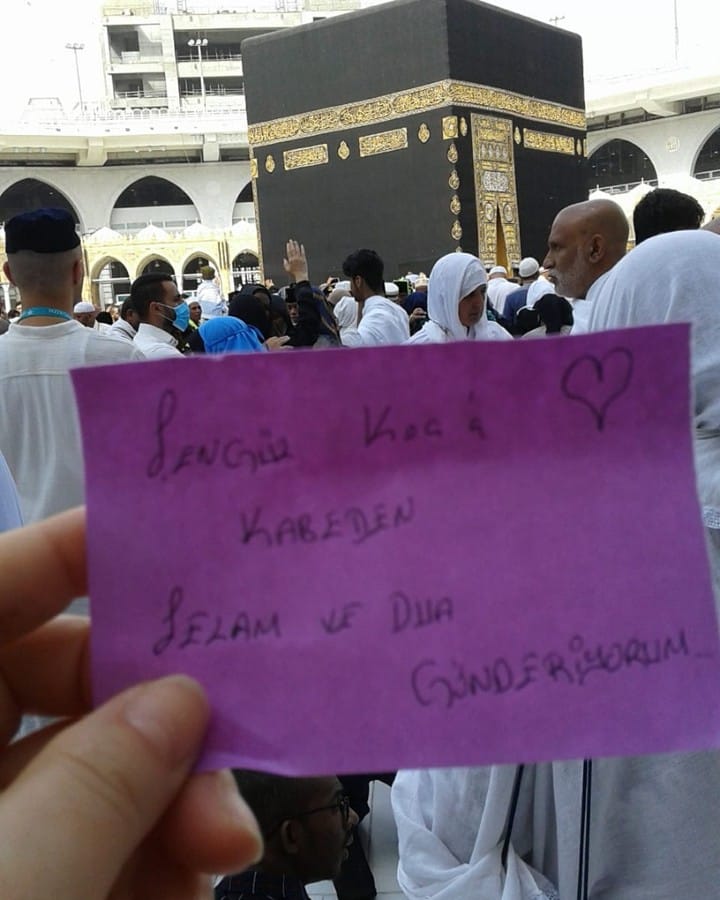 Şengül Koca ♡
KABEDEN
SELAM VE DUA
GÖNDERİYORUM